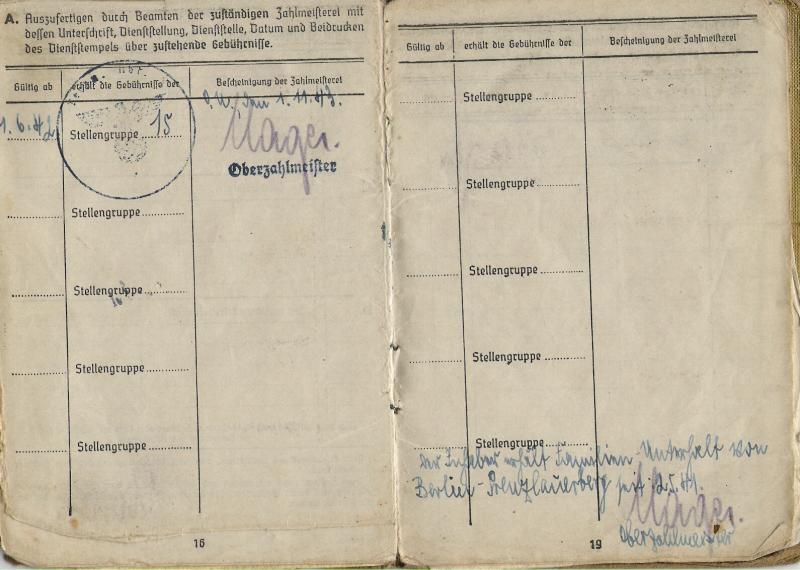 A. Auszufertigen durch Beamten der zuständigen Zahlmeisterei mit
dessen Unterschrift, Dienststellung, Dienststelle, Datum und Beidrucken
des Dienststempels über zustehende Gebührnisse.
Gültig ab erhält die Gebührnisse der Bescheinigung der Zahlmeisterei
O.U., den 1.11.43.
1.6.42 Stellengruppe 15
Oberzahlmeister
Stellengruppe
Stellengruppe
Stellengruppe
Stellengruppe
16
Gültig ab erhält die Gebührnisse der Bescheinigung der Zahlmeisterei
Stellengruppe
Stellengruppe
Stellengruppe
Stellengruppe
Stellengruppe
Der Inhaber erhält Familien-Unterhalt von
Berlin-Prenzlauerberg seit
Oberzahlmeister
19